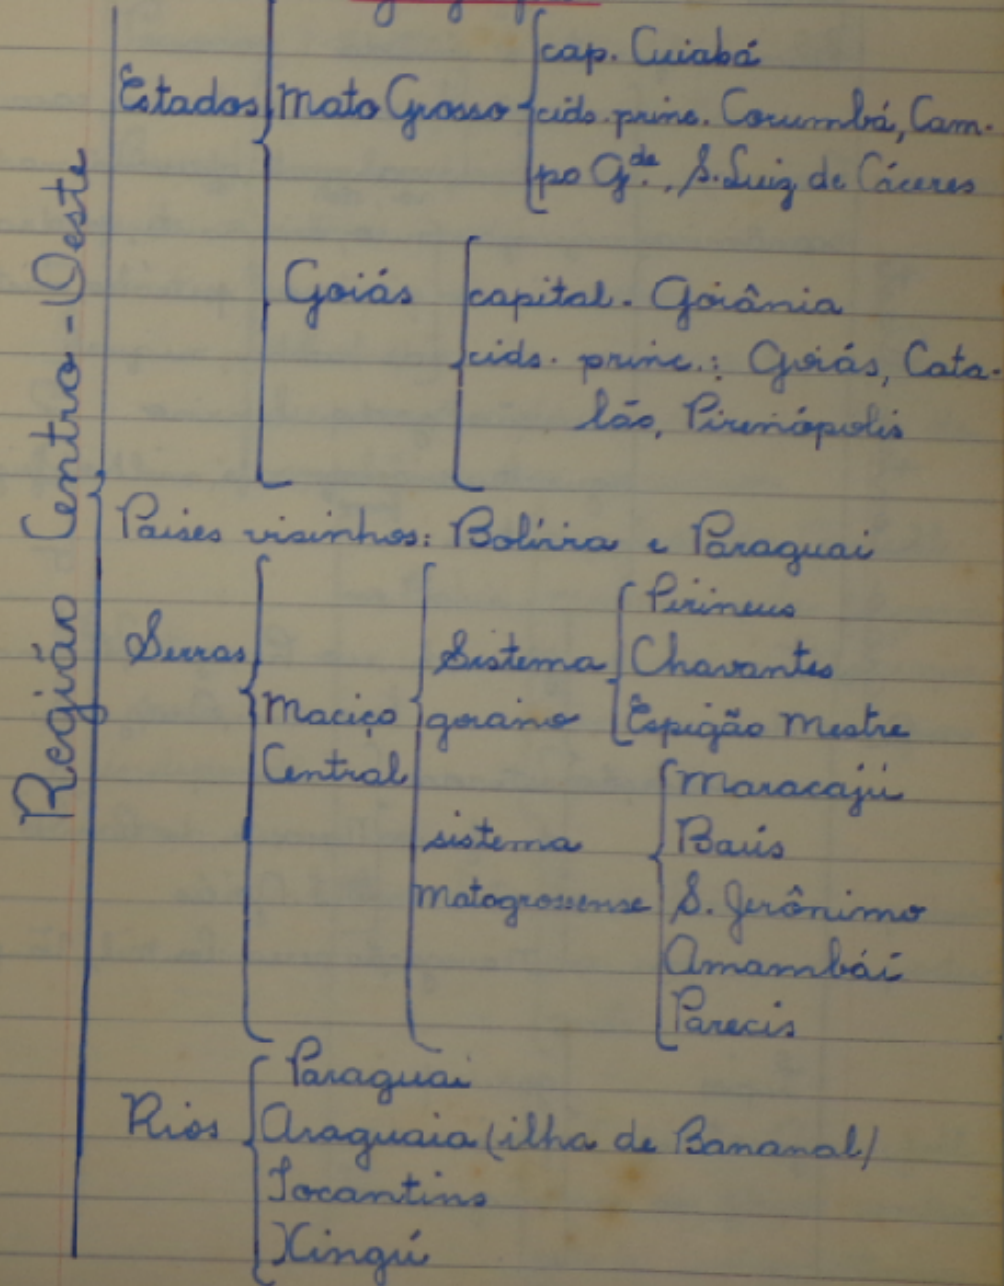 Região Centro-Oeste
Estados
Mato Grosso
cap. Cuiabá
cids. princ. Corumbá, Cam-
po Gde., S. Luiz de Cáceres
Goiás
capital. Goiânia
cids. princ.: Goiás, Cata-
lão, Pirinópolis
Paises visinhos: Bolívia e Paraguai
Serras
Maciço
Central
Sistema
goiano
Pirineus
Chavantes
Espigão Mestre
sistema
matogrossense
Maracajú
Baús
S. Jerônimo
Amambái
Parecis
Rios
Paraguai
Araguaia (ilha de Bananal)
Tocantins
Xingú